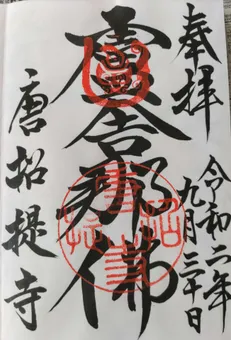 奉拝
令和二年
九月三十日
盧舎那佛
唐招提寺